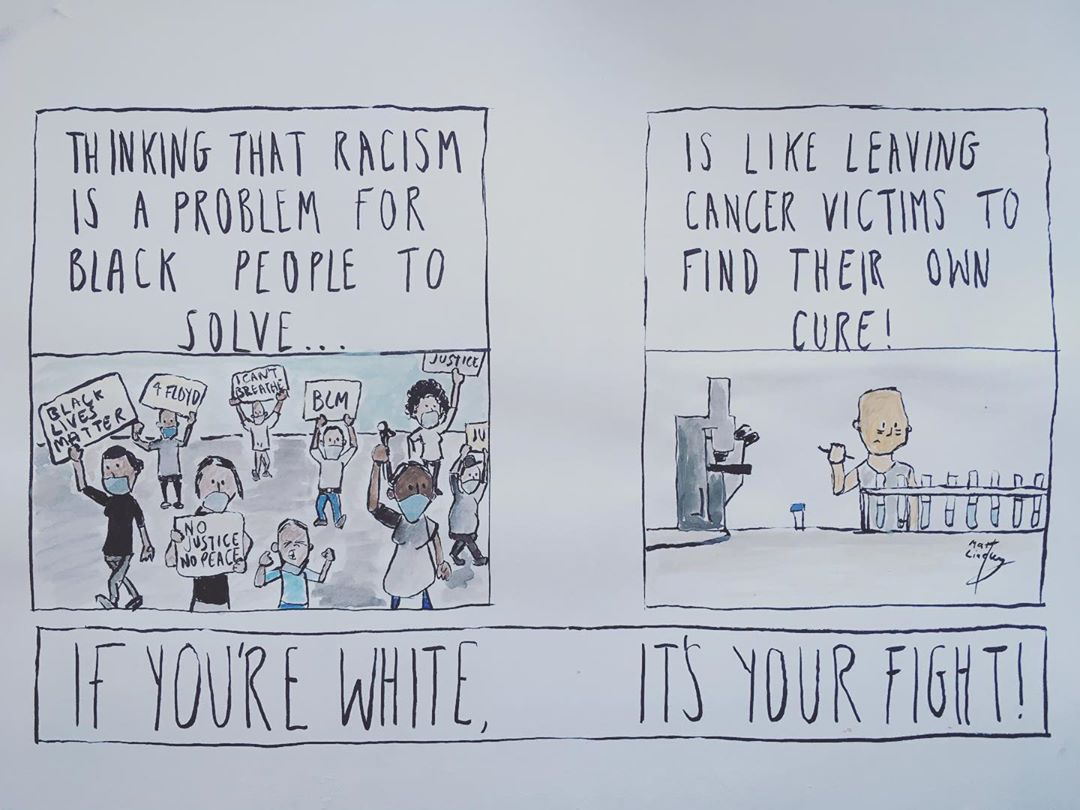 THINKING THAT RACISM
IS A PROBLEM FOR
BLACK PEOPLE TO
SOLVE...
JUSTICE
BLACK
LIVES
MATTER
4 FLOYD
I CAN'T
BREATHE
BLM
JU
NO
JUSTICE
NO PEACE
IS LIKE LEAVING
CANCER VICTIMS TO
FIND THEIR OWN
CURE!
Matt
IF YOU'RE WHITE, IT'S YOUR FIGHT!